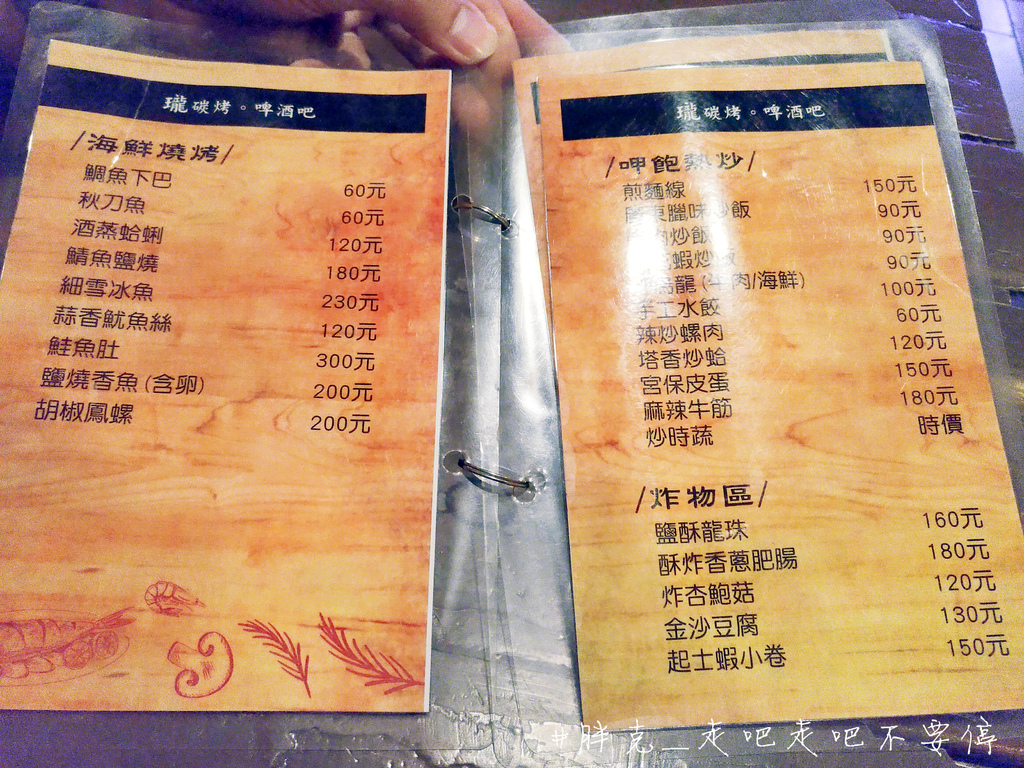 瓏碳烤。啤酒吧
/海鮮燒烤/
鯛魚下巴 60元
秋刀魚 60元
酒蒸蛤蜊 120元
鯖魚鹽燒 180元
細雪冰魚 230元
蒜香魷魚絲 120元
鮭魚肚 300元
鹽燒香魚(含卵) 200元
胡椒鳳螺 200元
瓏碳烤。啤酒吧
/呷飽熱炒/
煎麵線 150元
廣東臘味炒飯 90元
肉炒飯 90元
蝦炒飯 90元
烏龍(牛肉/海鮮) 100元
手工水餃 60元
辣炒螺肉 120元
塔香炒蛤 150元
宮保皮蛋 180元
麻辣牛筋 時價
炒時蔬
/炸物區/
鹽酥龍珠 160元
酥炸香蔥肥腸 180元
炸杏鮑菇 120元
金沙豆腐 130元
起士蝦小卷 150元
#胖克_走吧走吧不要停